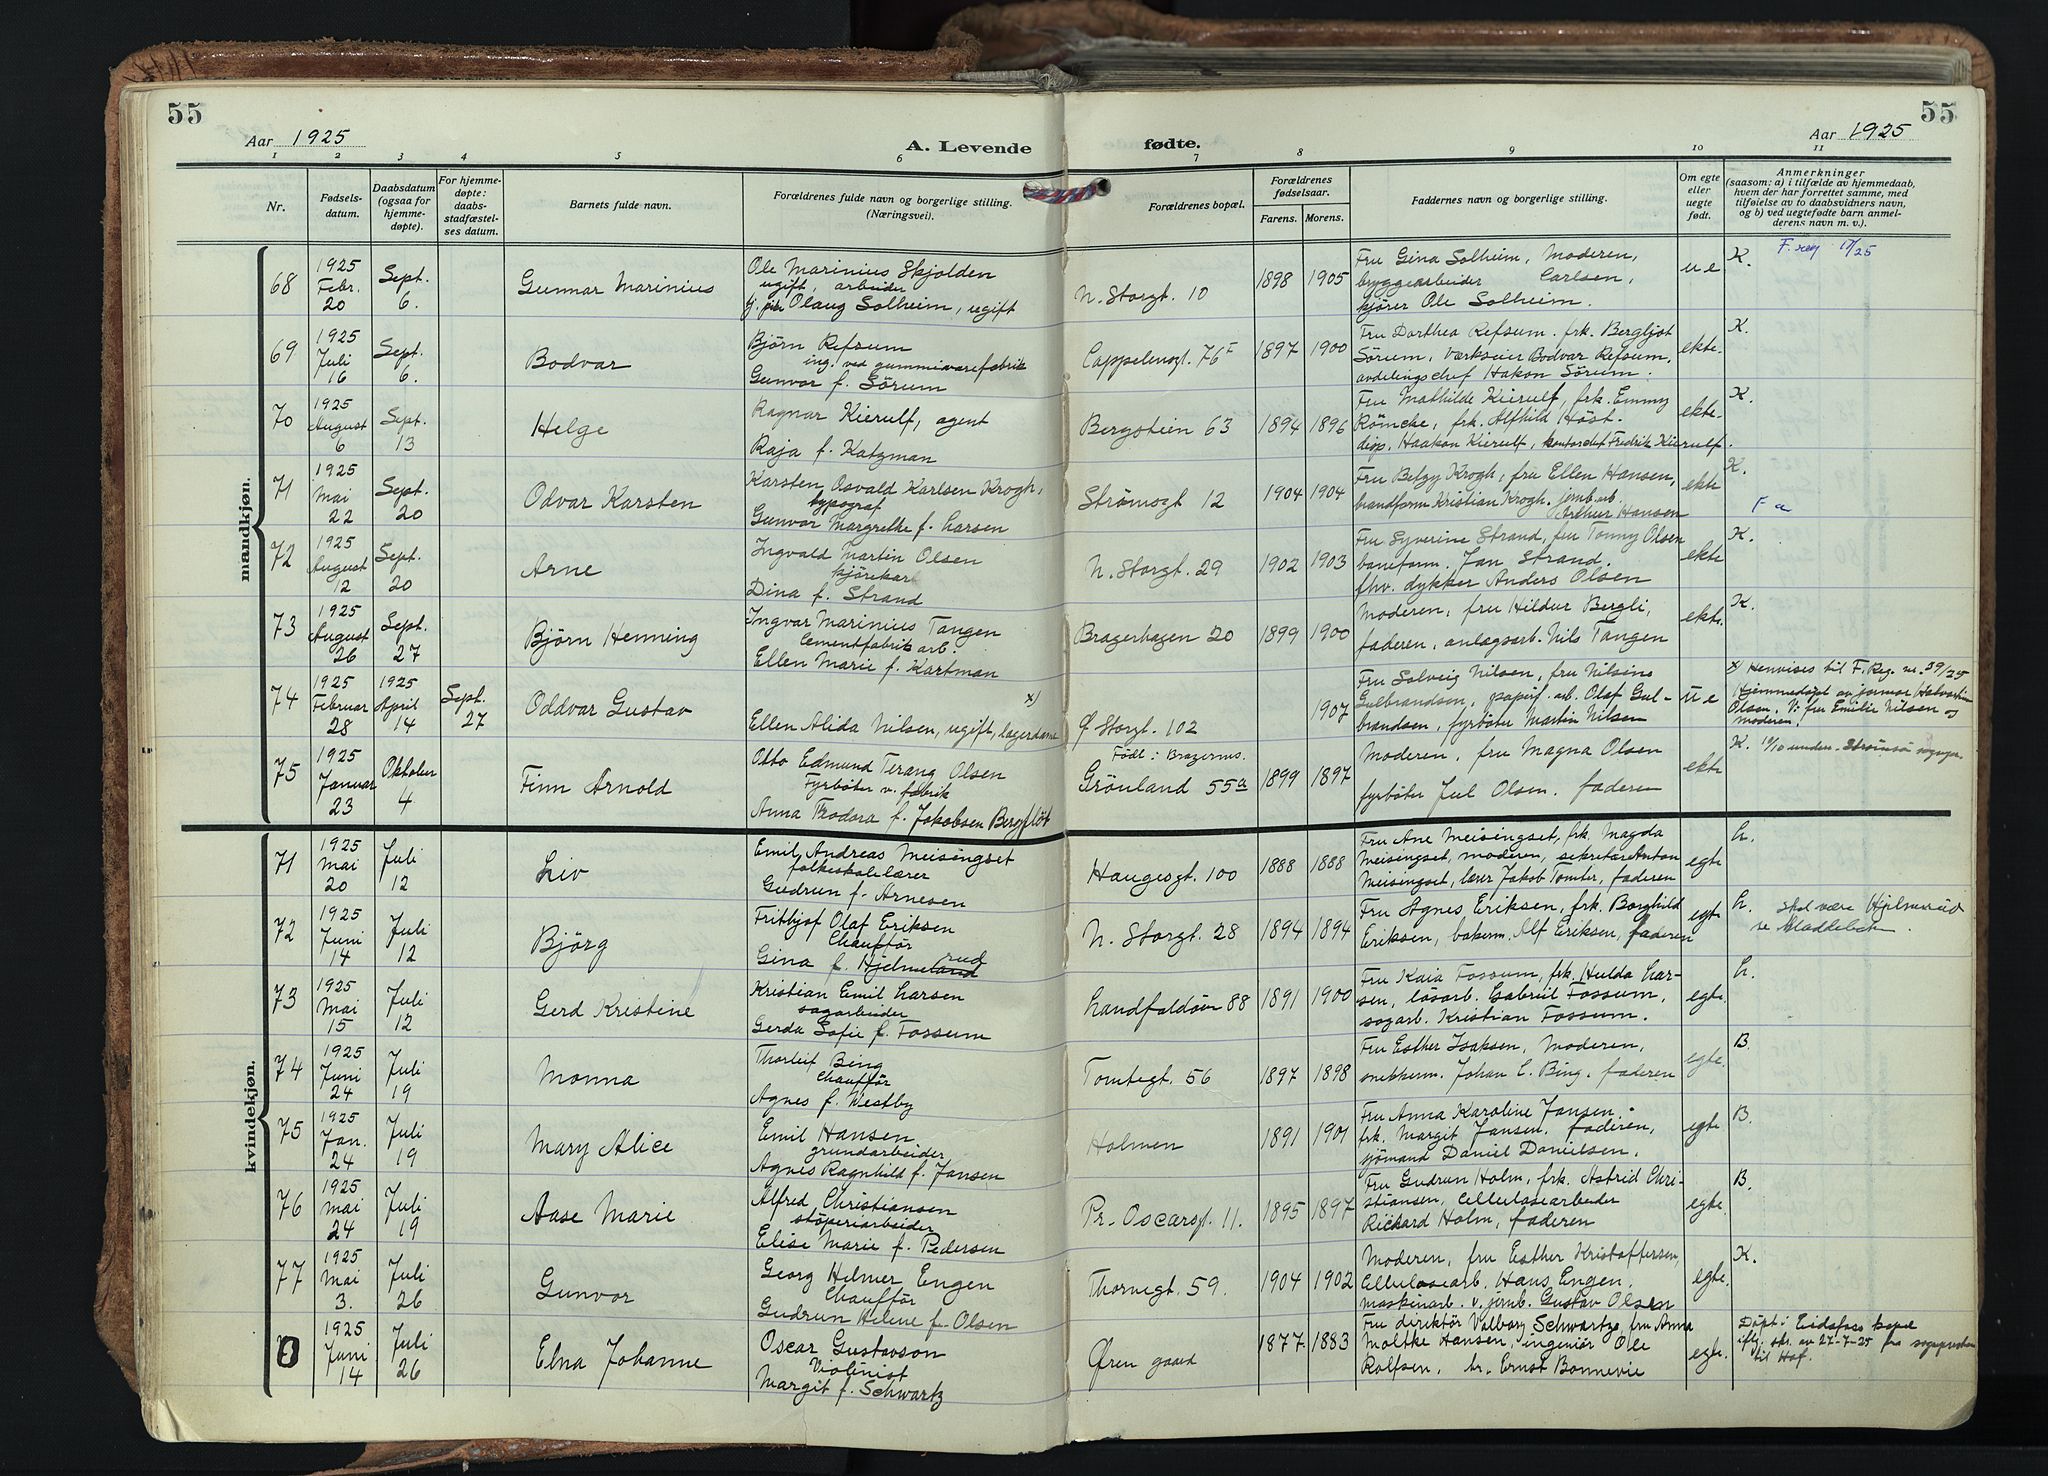 55
55
Aar 1925
A. Levende fødte.
Aar 1925
1 2 3 4 5 6 7 8 9 10 11
Nr.
Fødsels-
datum.
Daabsdatum
(ogsaa for
hjemme-
døpte).
For hjemme-
døpte:
daabs-
stadfæstel-
ses datum.
Barnets fulde navn.
Forældrenes fulde navn og borgerlige stilling.
(Næringsvei).
Forældrenes bopæl.
Forældrenes
fødselsaar.
Farens. Morens.
Faddernes navn og borgerlige stilling.
Om egte
eller
uegte
født.
Anmerkninger
(saasom: a) i tilfælde av hjemmedaab,
hvem der har forrettet samme, med
tilføielse av to daabsvidners navn,
og b) ved uegtefødte barn anmel-
derens navn m. v.).
mandkjøn.
68
1925
Febr.
20
Sept.
6.
Gunnar Marinius
Ole Marinius Skjolden
ugift, arbeider
Olaug Solheim, ugift
N. Storgt. 10
1898 1905
Fru Gina Solheim, Moderen,
bryggearbeider Carlsen,
kjører Ole Solheim.
u e
K.
69
1925
Juli
16
Sept.
6.
Bodvar
Bjørn Refsum
ing. ved gummivarefabrik
Gunvor f. Sørum
Cappelensgt. 76 F
1897 1900
Fru Dorthea Refsum, frk. Bergljot
Sørum, Værkseier Bodvar Refsum,
avdelingschef Hakon Sørum.
ekte
K.
70
1925
August
6
Sept.
13
Helge
Ragnar Kierulf, agent
Raja f. Katzman
Bergstien 63
1894 1896
Fru Mathilde Kierulf, frk. Emmy
Rømcke, frk. Alfhild Höst.
disp. Haakon Kierulf, kontorchef Fredrik Kierulf.
ekte
K.
71
1925
Mai
22
Sept.
20
Odvar Karsten
Karsten Osvald Karlsen Krogh,
typograf
Gunvor Margrethe f. Larsen
Strømsgt 12
1904 1904
Fru Betzy Krogh, fru Ellen Hansen,
brandform Kristian Krogh, jernb. arb.
Arthur Hansen
ekte
K.
F a
72
1925
August
12
Sept.
20
Arne
Ingvald Martin Olsen
kjørekar
Dina f. Strand
N. Storgt. 29
1902 1903
Fru Syverine Strand, fru Tonny Olsen
baneform. Jan Strand.
fhv. dykker Anders Olsen
ekte
K.
73
1925
August
26
Sept.
27
Bjørn Henning
Ingvar Marinius Tangen
Cementfabrik arb.
Ellen Marie f. Kartman
Bragerhagen 20
1899 1900
Moderen, fru Hildur Bergli,
faderen, anlægsarb. Nils Tangen
ekte
K.
74
1925
Februar
28
1925
April
14
Sept.
27
Oddvar Gustav
x)
Ellen Alida Nilsen, ugift, lagerdame
Ø Storgt. 102
1907
Fru Solveig Nilsen, fru Nilsine
Gulbrandsen, papirf. arb. Olaf Gul-
brandsen, fyrbøter Martin Nilsen
u e
x) Henvises til F. Reg. nr. 39/25
Hjemmedøpt av jormor Halvordine
Olsen, V: fru Emilie Nilsen og
moderen.
75
1925
Januar
23
Oktober
4
Finn Arnold
Otto Edmund Terang Olsen
Fyrbøter v. fabrik
Anna Teodora f. Jakobsen Bergfløt
Født: Bragernes.
Grönland 55a
1899 1897
Moderen, fru Magna Olsen
fyrbøter Jul Olsen. faderen
ekte
K.
kvindekjøn.
71
1925
Mai
20
Juli
12
Liv
Emil Andreas Meisingset
folkeskolelærer
Gudrun f. Arnesen
Haugesgt. 100
1888 1888
Fru Ane Meisingset, frk. Magda
Meisingset, moderen, sekretær Anton
Meisingset, lærer Jakob Tomter, faderen
egte
L.
72
1925
Juni
14
Juli
12
Bjørg
Frithjof Olaf Eriksen
Chauffør
Gina f. Hjelmeland rud
N. Storgt. 28
1894 1894
Fru Agnes Eriksen, frk. Borghild
Eriksen, bakerm. Alf Eriksen, faderen
egte
L.
skal være Hjelmerud
73
1925
Mai
15
Juli
12
Gerd Kristine
Kristian Emil Larsen
sagarbeider
Gerda Sofie f. Fossum
Landfaldøen 88
1891 1900
Fru Kaia Fossum, frk. Hulda Lar-
sen, løsarb. Gabriel Fossum,
sagarb. Kristian Fossum.
egte
L.
74
1925
Juni
24
Juli
19
Monna
Thorleif Bing
Chauffør
Agnes f. Westby
Tomtegt. 56
1897 1898
Fru Esther Isaksen, Moderen,
snekkerm. Johan C. Bing, faderen
egte.
B.
75
1925
Jan.
24
Juli
19
Mary Alice
Emil Hansen
grundarbeider
Agnes Ragnhild f. Jansen
Holmen
1891 1901
Fru Anna Karoline Jansen.
frk. Margit Jansen, faderen,
sjømand Daniel Danielsen.
egte
B.
76
1925
Mai
24
Juli
19
Aase Marie
Alfred Christiansen
støperiarbeider
Elise Marie f. Pedersen
Pr. Oscarsg. 11.
1895 1897
Fru Gudrun Holm, frk. Astrid Chri-
stiansen, Cellulosearbeider
Rickard Holm, faderen
egte.
B.
77
1925
Mai
3.
Juli
26
Gunvor
Georg Helmer Engen
Chauffør
Gudrun Helene f. Olsen
Thornegt. 59.
1904 1902
Moderen, fru Esther Kristoffersen,
Cellulosearb. Hans Engen.
maskinarb. v. jernb. Gustav Olsen
egte.
K.
0
1925
Juni
14
Juli
26
Elna Johanne
Oscar Gustavson
Violinist
Margit f. Schwartz
Øren gaard
1877 1883
Fru direktør Valborg Schwartze fru Anna
Moltke Hansen, ingeniør Ole
Rolfsen, hr. Ernst Bonnevie
egte.
Døpt i Eidsfoss kapel
iflg. skr. av 27-7-25 fra sognepresten
til Hof.